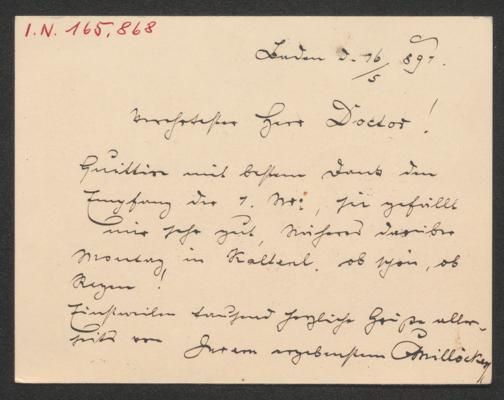 I.N. 165,868
Baden d. 16/5 891.
Verehrtester Herr Doctor!
Quittire mit bestem Dank den
Empfang der 1. Nr:, sie gefällt
mir sehr gut, Näheres darüber
Montag in Kaltenl. ob schön, ob
Regen!
Einstweilen tausend herzliche Grüße aller-
seits von Ihrem ergebensten CMillöcker